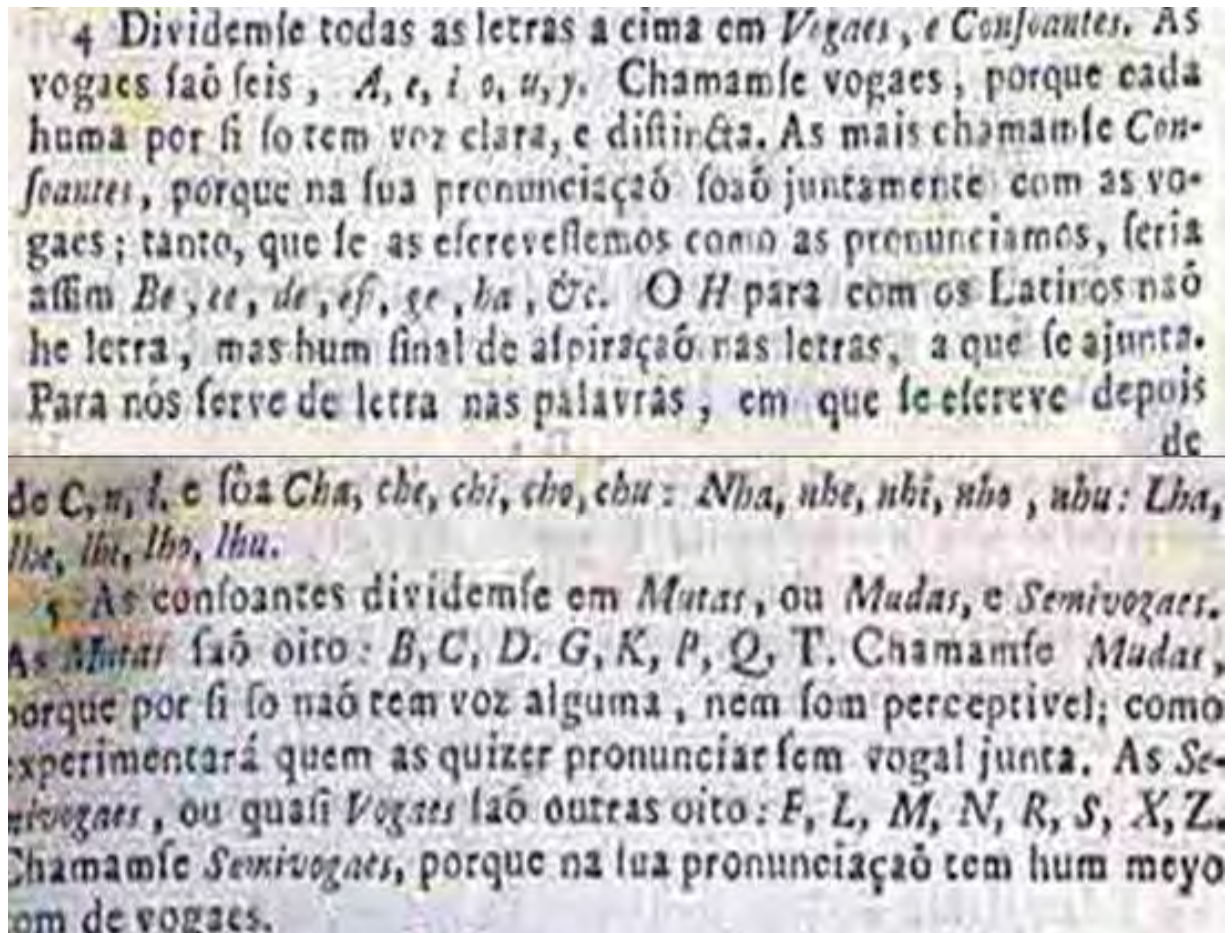 4 Dividemſe todas as letras a cima em Vogaes, e Conſoantes. As
vogaes ſaõ ſeis, A, e, i o, u, y. Chamamſe vogaes, porque cada
huma por ſi ſo tem voz clara, e diſtincta. As mais chamamſe Con-
ſoantes, porque na ſua pronunciaçaõ ſoaõ juntamente com as vo-
gaes; tanto, que ſe as eſcreveſſemos como as pronunciamos, ſeria
aſſim Be, ce, de, ef, ge, ha, &c. O H para com os Latinos naõ
he letra, mas hum ſinal de aſpiraçaõ nas letras, a que ſe ajunta.
Para nós ſerve de letra nas palavras, em que ſe eſcreve depois
de
de C, n, l, e ſôa Cha, che, chi, cho, chu: Nha, nhe, nhi, nho, nhu: Lha,
lhe, lhi, lho, lhu.
5 As conſoantes dividemſe em Mutas, ou Mudas, e Semivogaes.
As Mutas ſaõ oito: B, C, D. G, K, P, Q, T. Chamamſe Mudas,
porque por ſi ſo naõ tem voz alguma, nem ſom perceptivel; como
experimentará quem as quizer pronunciar ſem vogal junta. As Se-
mivogaes, ou quaſi Vogaes ſaõ outras oito: F, L, M, N, R, S, X, Z.
Chamamſe Semivogaes, porque na ſua pronunciaçaõ tem hum meyo
ſom de vogaes.